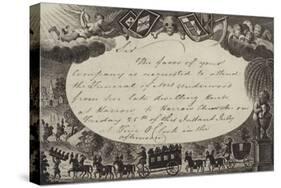 Sir
The favor of your
Company is requested to attend
the Funeral of Mrs Underwood
from her late dwelling House
at Harrow to Harrow Church on
Tuesday 25th of this Instant July
at Five O'Clock in the
afternoon